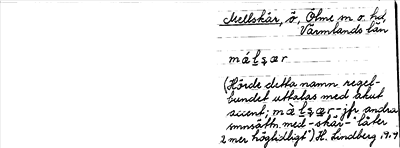 Mellskär, ö, Ölme sn o. hd,
Värmlands län
(Hörde detta namn regel-
bundet uttalas med akut
accent; - jfr andra
smnsättn. med -skär- låter
2 mer högtidligt") H. Lindberg